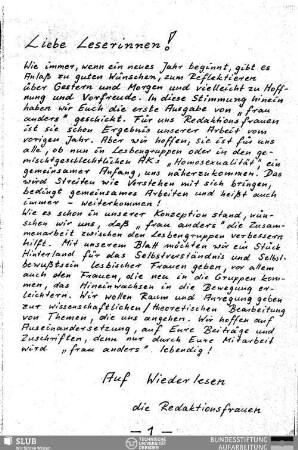 Liebe Leserinnen!
Wie immer, wenn ein neues Jahr beginnt, gibt es
Anlaß zu guten Wünschen, zum Reflektieren
über Gestern und Morgen und vielleicht zu Hoff-
nung und Vorfreude. In diese Stimmung hinein
haben wir Euch die erste Ausgabe von "frau
anders" geschickt. Für uns Redaktionsfrauen
ist sie schon Ergebnis unserer Arbeit vom
vorigen Jahr. Aber wir hoffen, sie ist für uns
alle, ob nun in Lesbengruppen oder in den ge-
mischtgeschlechtlichen AK's "Homosexualität" ein
gemeinsamer Anfang, uns näherzukommen. Das
wird Streiten wie Verstehen mit sich bringen,
bedingt gemeinsames Arbeiten und heißt auch
immer - weiterkommen!
Wie es schon in unserer Konzeption stand, wün-
schen wir uns, daß "frau anders" die Zusam-
menarbeit zwischen den Lesbengruppen verbessern
hilft. Mit unserem Blatt möchten wir ein Stück
Hinterland für das Selbstverständnis und Selbst-
bewußtsein lesbischer Frauen geben, vor allem
auch den Frauen, die neu in die Gruppen kom-
men, das Hineinwachsen in die Bewegung er-
leichtern. Wir wollen Raum und Anregung geben
zur wissenschaftlichen/theoretischen Bearbeitung
von Themen, die uns angehen. Wir hoffen auf
Auseinandersetzung, auf Eure Beiträge und
Zuschriften, denn nur durch Eure Mitarbeit
wird "frau anders" lebendig!
Auf Wiederlesen
die Redaktionsfrauen
- 1 -
SLUB
Wir führen Wissen.
TECHNISCHE
UNIVERSITÄT
DRESDEN
BUNDESSTIFTUNG
AUFARBEITUNG